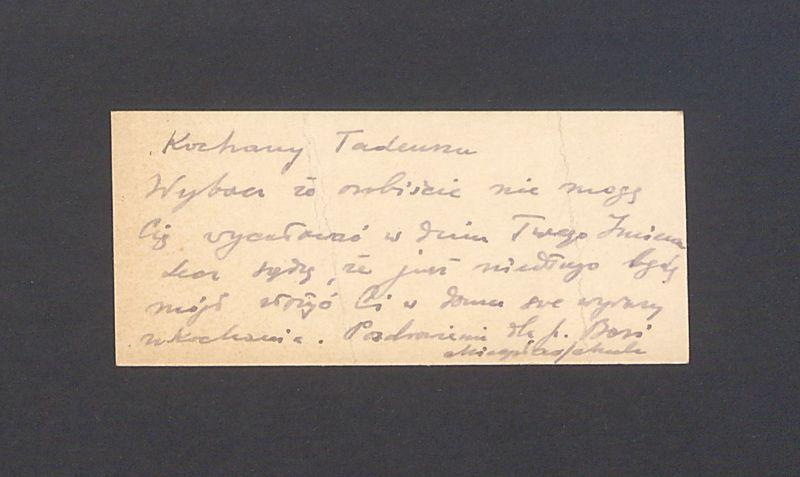 Kochany Tadeuszu
Wybacz że osobiście nie mogę
Cię wycałować w dniu Twego Imienia
lecz sądzę, że już niedługo będę
mógł złożyć Ci w domu swe wyrazy
ukochania. Pozdrowienia dla p. Basi